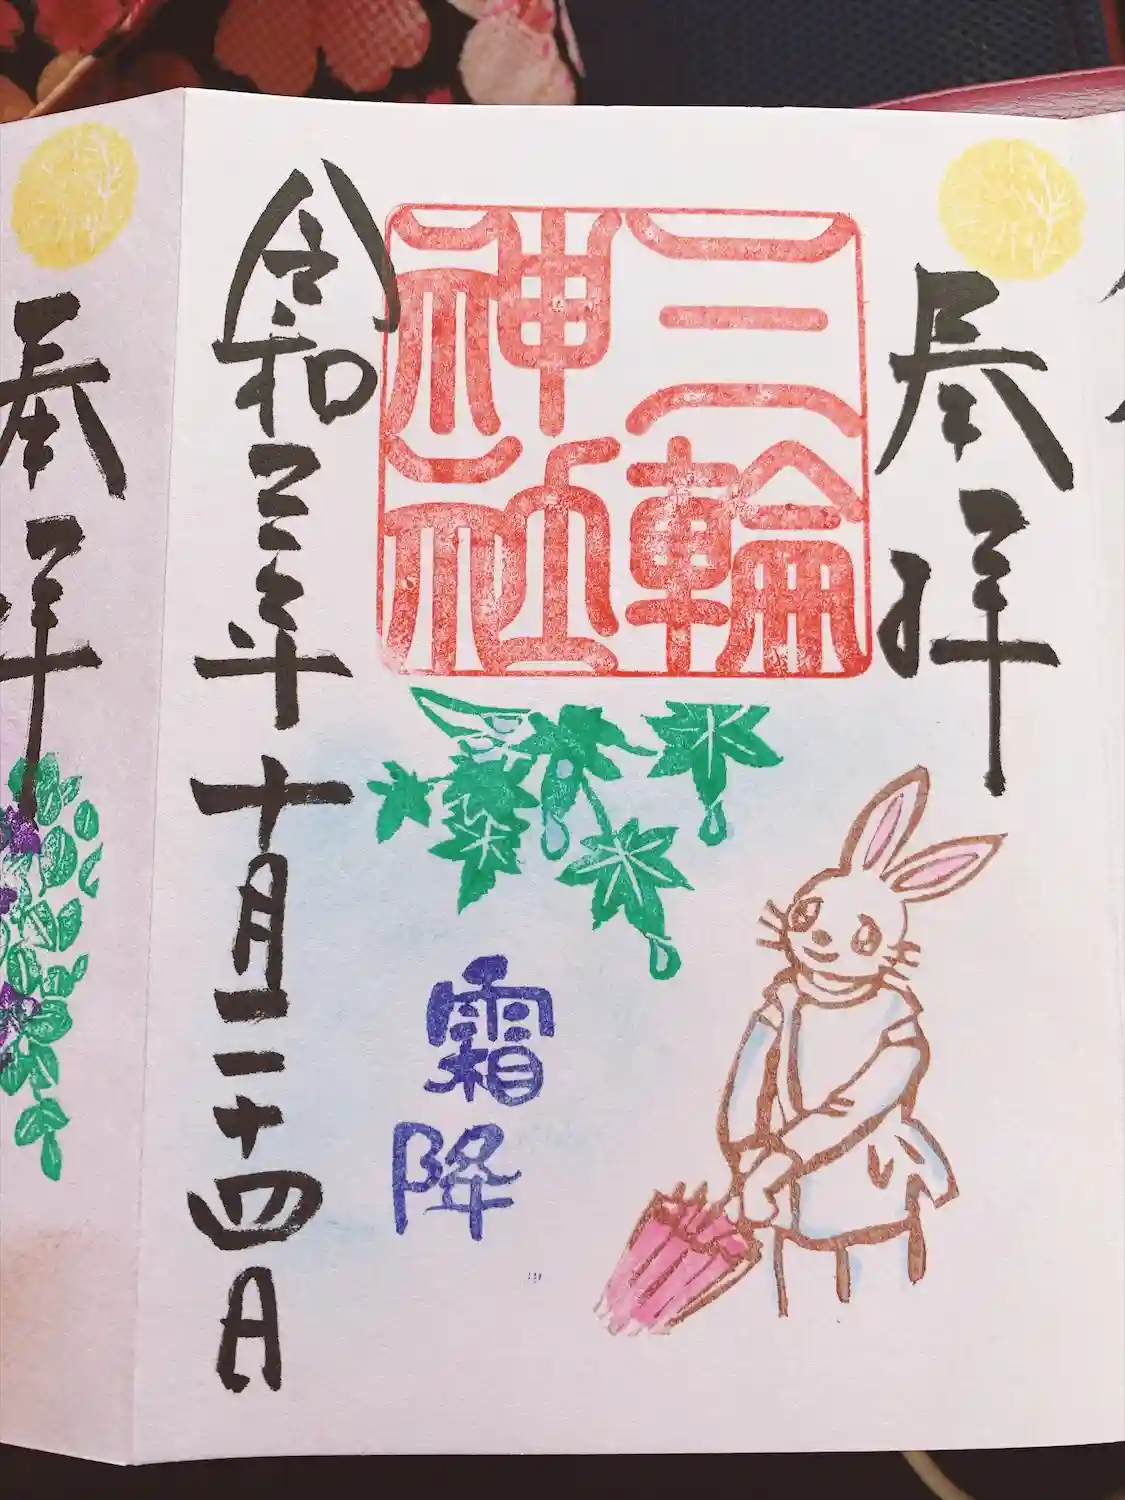 奉拝
三輪
神社
霜降
令和三年十月二十四日
奉拝